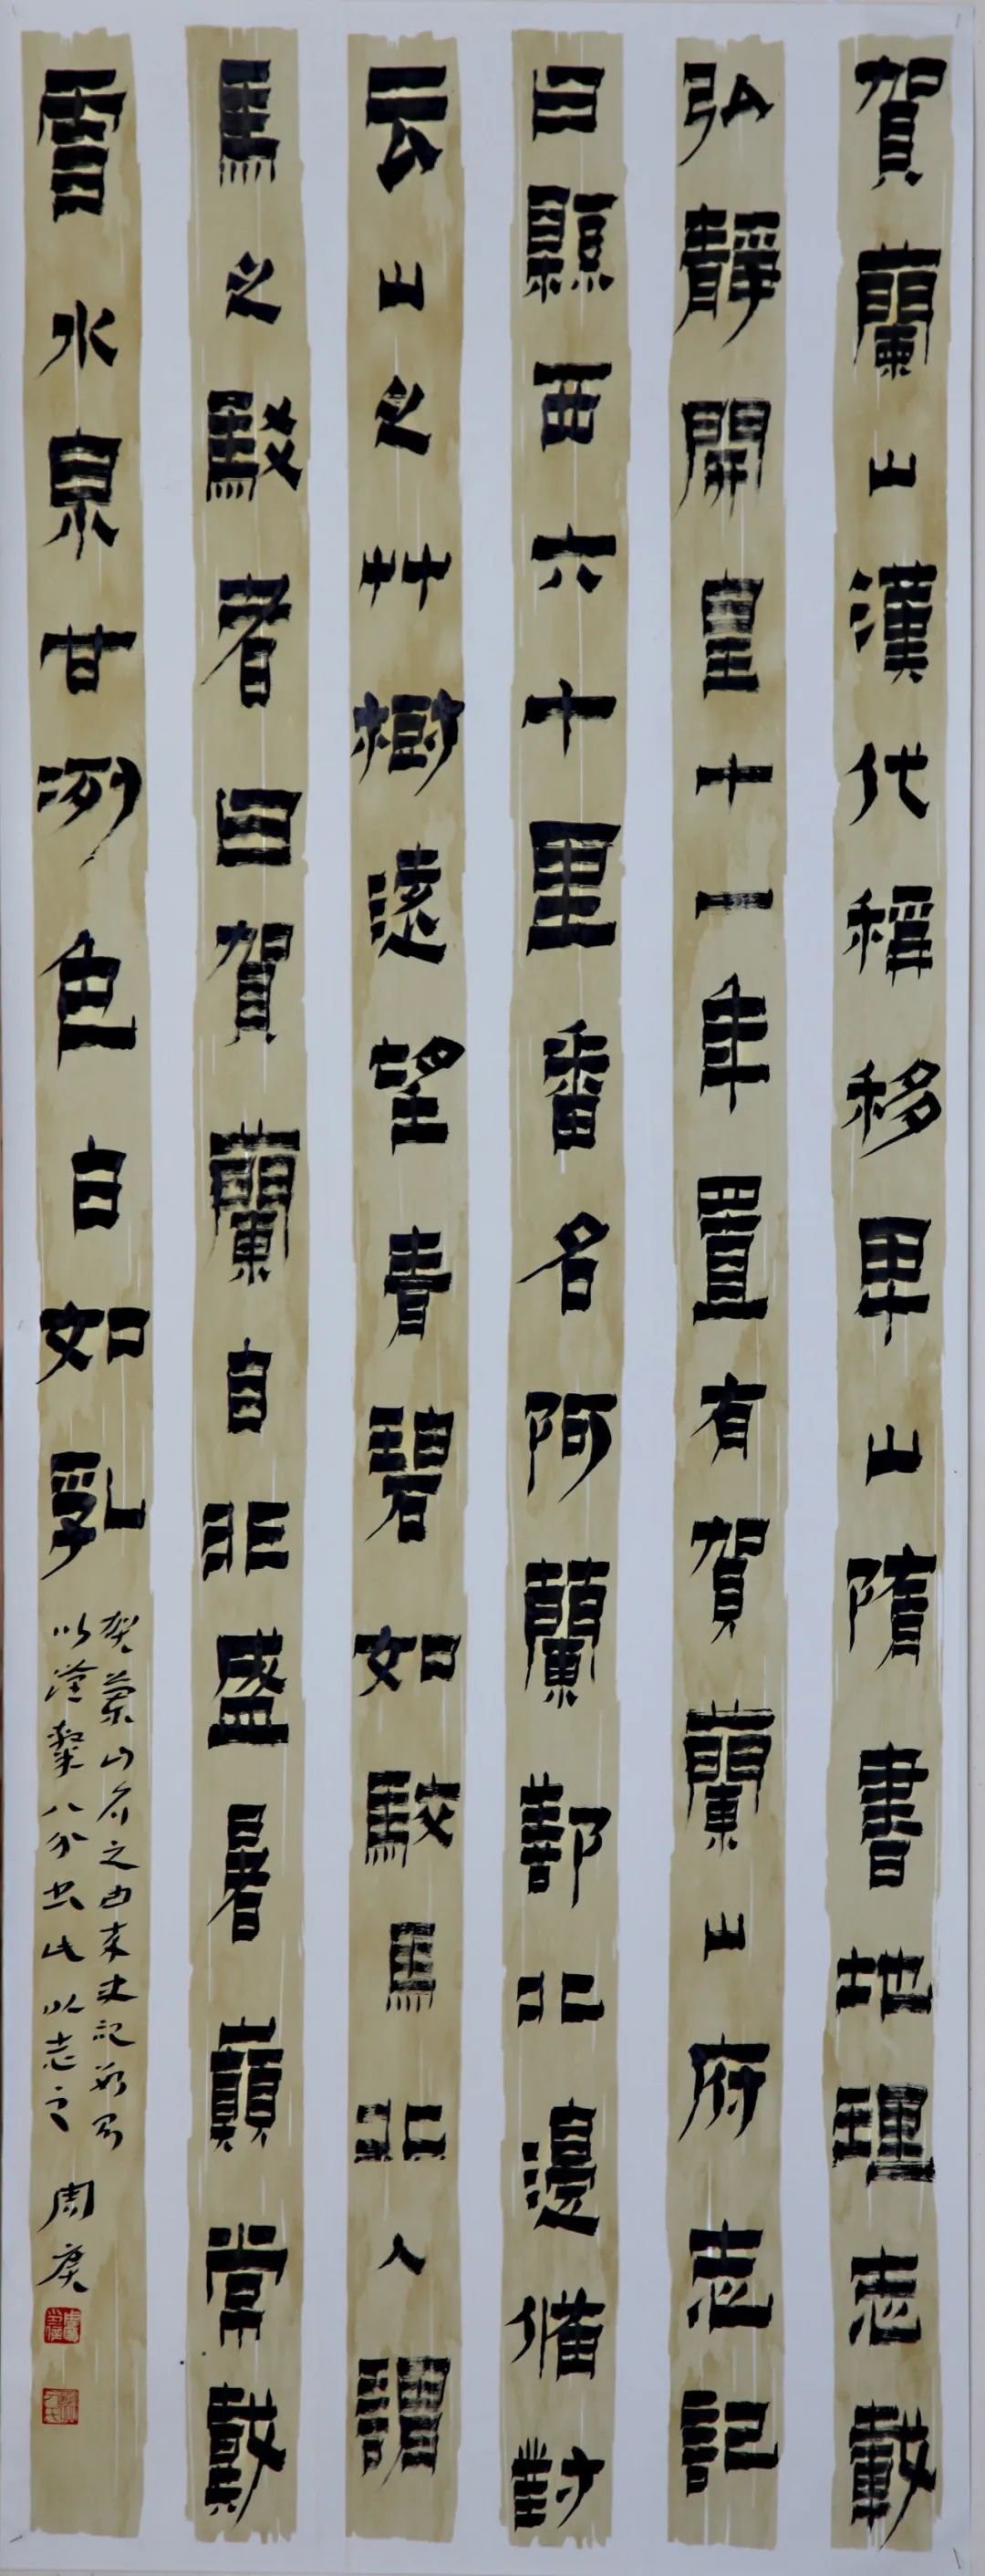 賀蘭山漢代稱移卑山隋書地理志載
弘靜開皇十一年置有賀蘭山府志記
曰縣西六十里番名阿蘭鄯北邊備對
云山之艸樹遠望青碧如駮馬北人謂
馬之駮者曰賀蘭自非盛暑巔常戴
雪水泉甘冽色白如乳
賀蘭山名之由來史記
以漢隸八分書此以志之
周庚